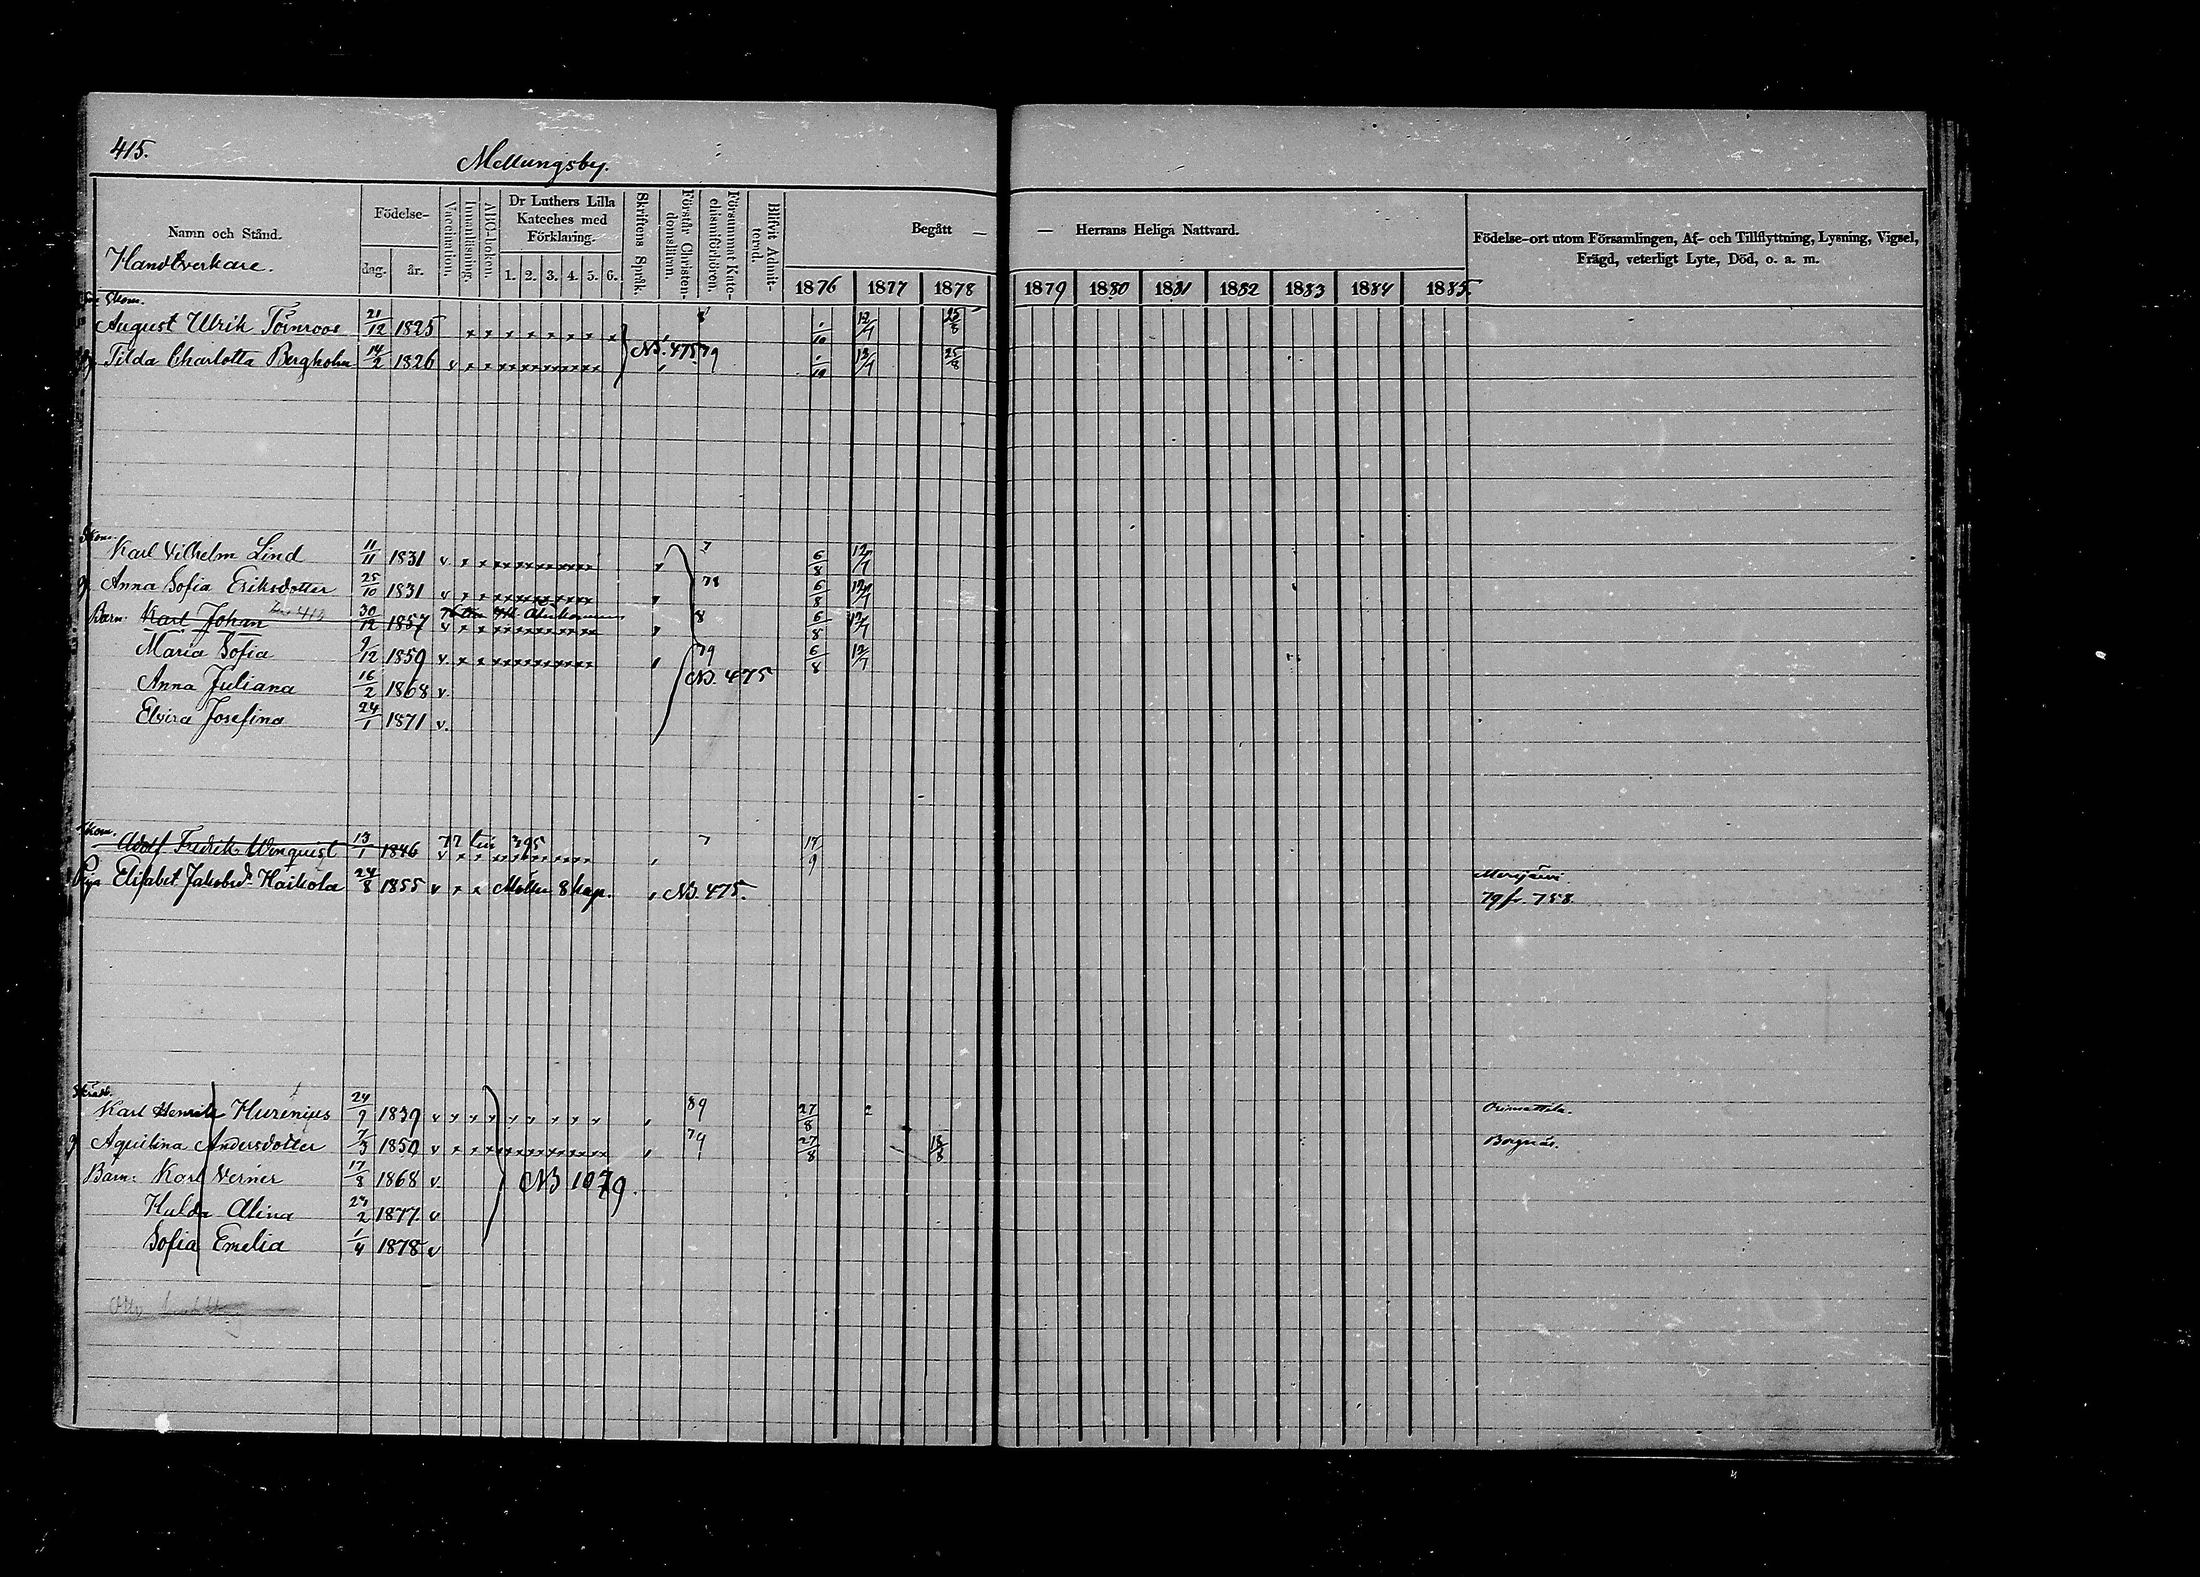 415.
Mellungsby.
Namn och Stånd.
Handtverkare.
Födelse-
dag. år.
Vaccination.
Innanläsning.
ABC-boken.
Dr Luthers Lilla Kateches med Förklaring.
1. 2. 3. 4. 5. 6.
Skriftens Språk.
Förstår Christendomsläran.
Försummat Katechismiförhören.
Blifvit Admitterad.
Begått — — Herrans Heliga Nattvard.
1876 1877 1878 1879 1880 1881 1882 1883 1884 1885.
Födelse-ort utom Församlingen, Af- och Tillflyttning, Lysning, Vigsel,
Frägd, veterligt Lyte, Död, o. a. m.
Skom.
August Ulrik Törnroos 21/12 1825 1/10 12/7 25/8
NB. 475 79
Tilda Charlotta Bergholm 14/2 1826 v 1/10 12/7 25/8
Skom.
Karl Vilhelm Lind 11/11 1831 v 7 6/8 12/7
g Anna Sofia Eriksdotter 25/10 1831 v 78 6/8 12/7
Barn: Karl Johan 30/12 1857 v 8 6/8 12/7
Maria Sofia 9/12 1859 v 79 6/8 12/7
NB. 475
Anna Juliana 16/2 1868 v.
Elvira Josefina 24/1 1871 v.
Skom.
Adolf Fredrik Wenquist 13/1 1846 77 till 395 v 7 17/9
Piga Elisabet Jakobsd. Haikola 24/8 1855 v 8 kap. NB. 475. Merijärvi.
79 fr. 758.
Skrädd.
Karl Henrik Hurenius 24/9 1839 v 89 27/8 2 Orimattila.
g Aquilina Andersdotter 7/3 1850 v 79 27/8 18/8 Borgnäs.
Barn: Karl Verner 17/8 1868 v. NB 1079.
Hulda Alina 24/2 1877. v
Sofia Emelia 1/4 1878 v